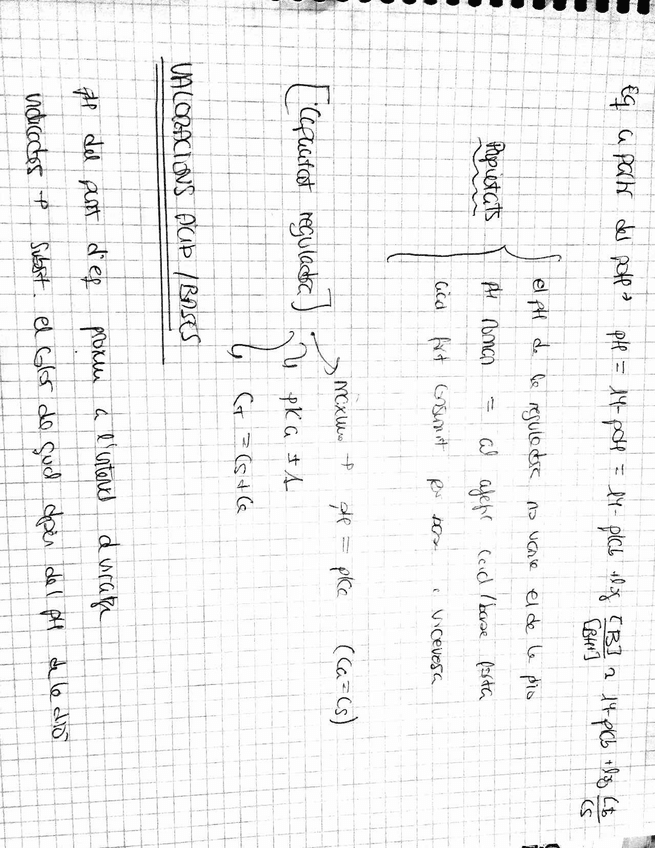 Eq a partir del pOH → pH = 14 - pOH = 14 - pKb + log [B]/[BH+] ≈ 14 - pKb + log Cb/Cs
Propietats
el pH de la reguladora no varia el de la dió
pH roman = al afegir àcid/base forta
àcid fort consumit per base i viceversa
[Capacitat reguladora]
màxima → pH = pKa (Ca = Cs)
pKa ± 1
CT = Cs + Ca
VALORACIONS ÀCID/BASES
pH del punt d'eq pròxim a l'interval d viratge
Indicadors → subst. el color de qual depèn del pH de la dió